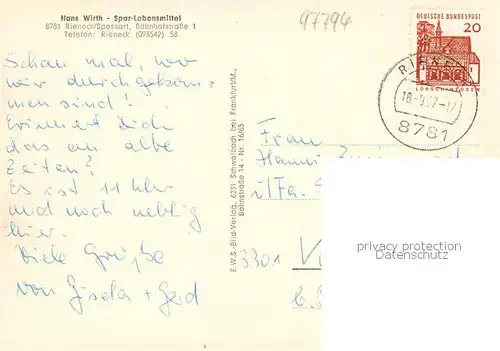 Hans Wirth - Spar-Lebensmittel
8781 Rieneck/Spessart, Bahnhofstraße 1
Telefon: Rieneck (093542) 58
97794
DEUTSCHE BUNDESPOST
20
LORSCH/HESSEN
RIENE
18.-9.67-17
8781
Schau mal, wo
wir durchgekom-
men sind!
Erinnert Dich
das an alte
Zeiten?
Es ist 11 Uhr
und noch neblig
hier.
Viele Grüße
von Gisela + Gerd
E.W.S.-Bild-Verlag, 6231 Schwalbach bei Frankfurt/M.,
Bahnstraße 14 - Nr. 16/65
Frau
Hanni
i/Fa.
3301
privacy protection
Datenschutz